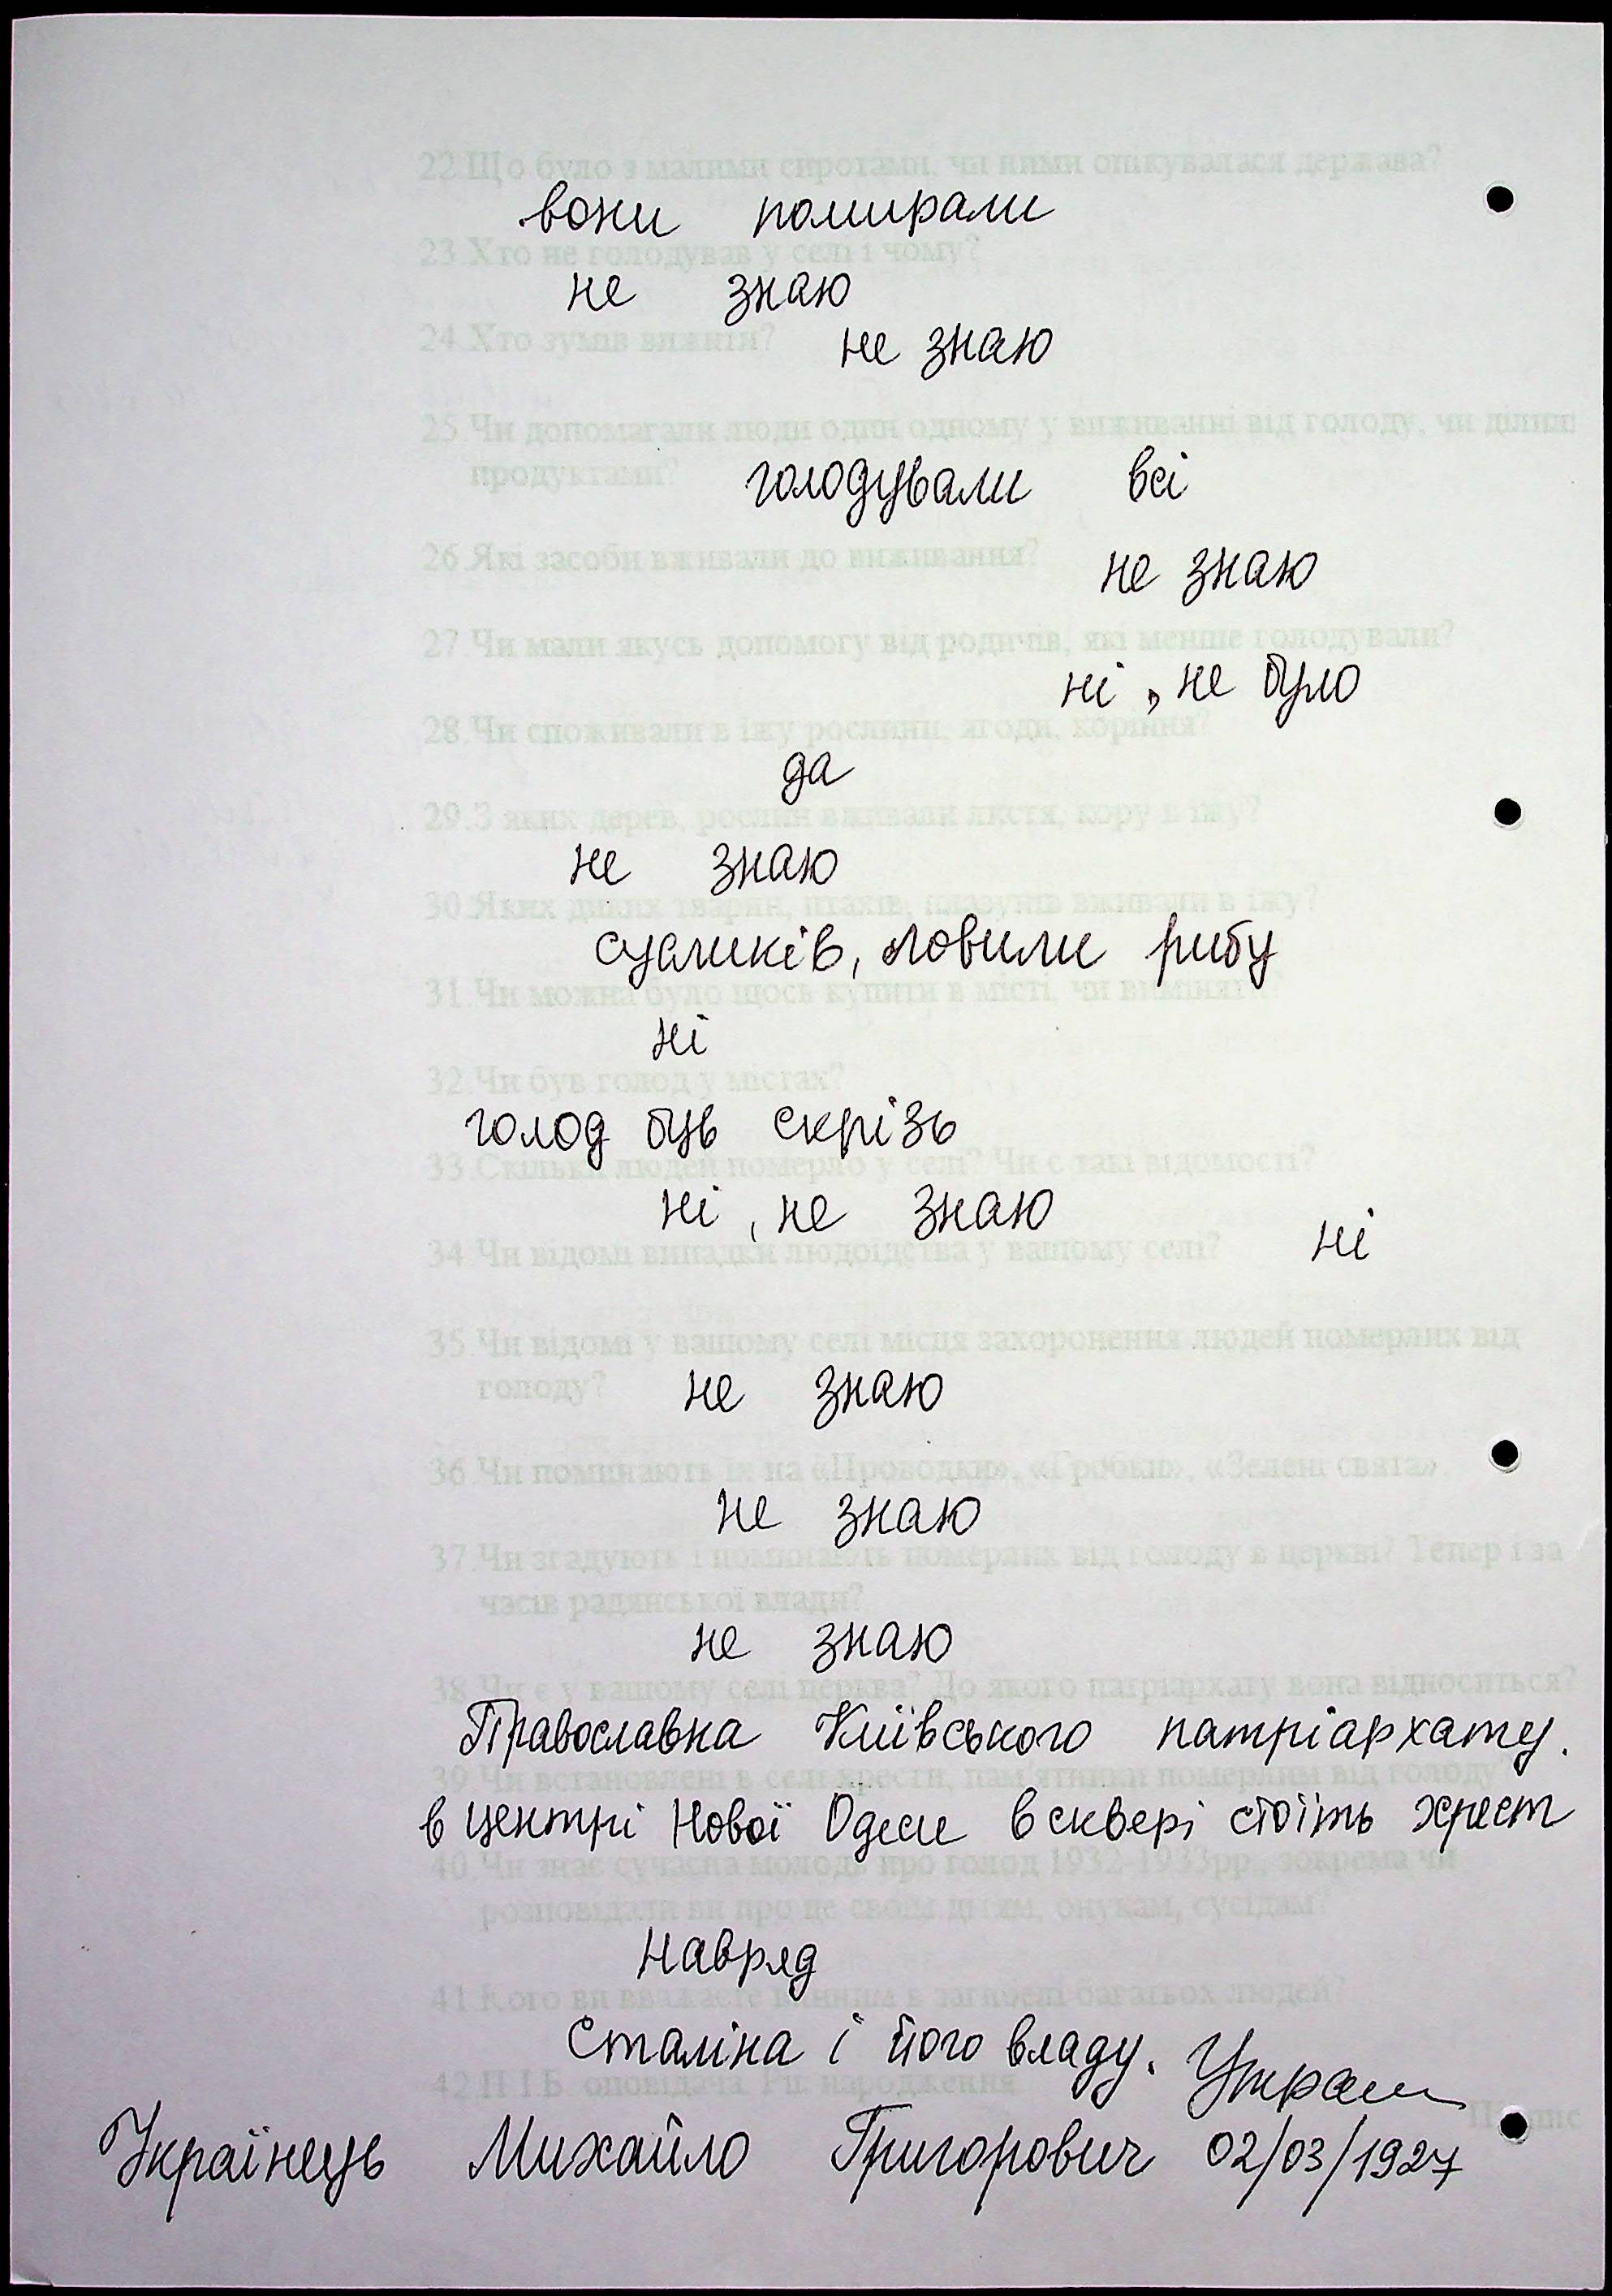 22.Що було з малими сиротами, чи ними опікувалася держава?
вони помирали
23.Хто не голодував у селі і чому?
не знаю
24.Хто зумів вижити? не знаю
25.Чи допомагали люди один одному у виживанні від голоду, чи ділились
продуктами? голодували всі
26.Які засоби вживали до виживання?
не знаю
27.Чи мали якусь допомогу від родичів, які менше голодували?
ні, не було
28.Чи споживали в їжу рослини, ягоди, коріння?
да
29.З яких дерев, рослин вживали листя, кору в їжу?
не знаю
30.Яких диких тварин, птахів, плазунів вживали в їжу?
сусликів, ловили рибу
31.Чи можна було щось купити в місті, чи виміняти?
ні
32.Чи був голод у містах?
голод був скрізь
33.Скільки людей померло у селі? Чи є такі відомості?
ні, не знаю
34.Чи відомі випадки людоїдства у вашому селі? ні
35.Чи відомі у вашому селі місця захоронення людей померлих від
голоду? не знаю
36.Чи поминають їх на «Проводки», «Гробки», «Зелені свята».
не знаю
37.Чи згадують і поминають померлих від голоду в церкві? Тепер і за
часів радянської влади?
не знаю
38.Чи є у вашому селі церква? До якого патріархату вона відноситься?
Православна Київського патріархату.
39.Чи встановлені в селі хрести, пам'ятники померлим від голоду
в центрі Нової Одеси в сквері стоїть хрест
40.Чи знає сучасна молодь про голод 1932-1933рр., зокрема чи
розповідали ви про це своїм дітям, онукам, сусідам?
навряд
41.Кого ви вважаєте винним в загибелі багатьох людей?
Сталіна і його владу.
42.П.І.Б. оповідача. Рік народження
Підпис
Українець Михайло Григорович 02/03/1927